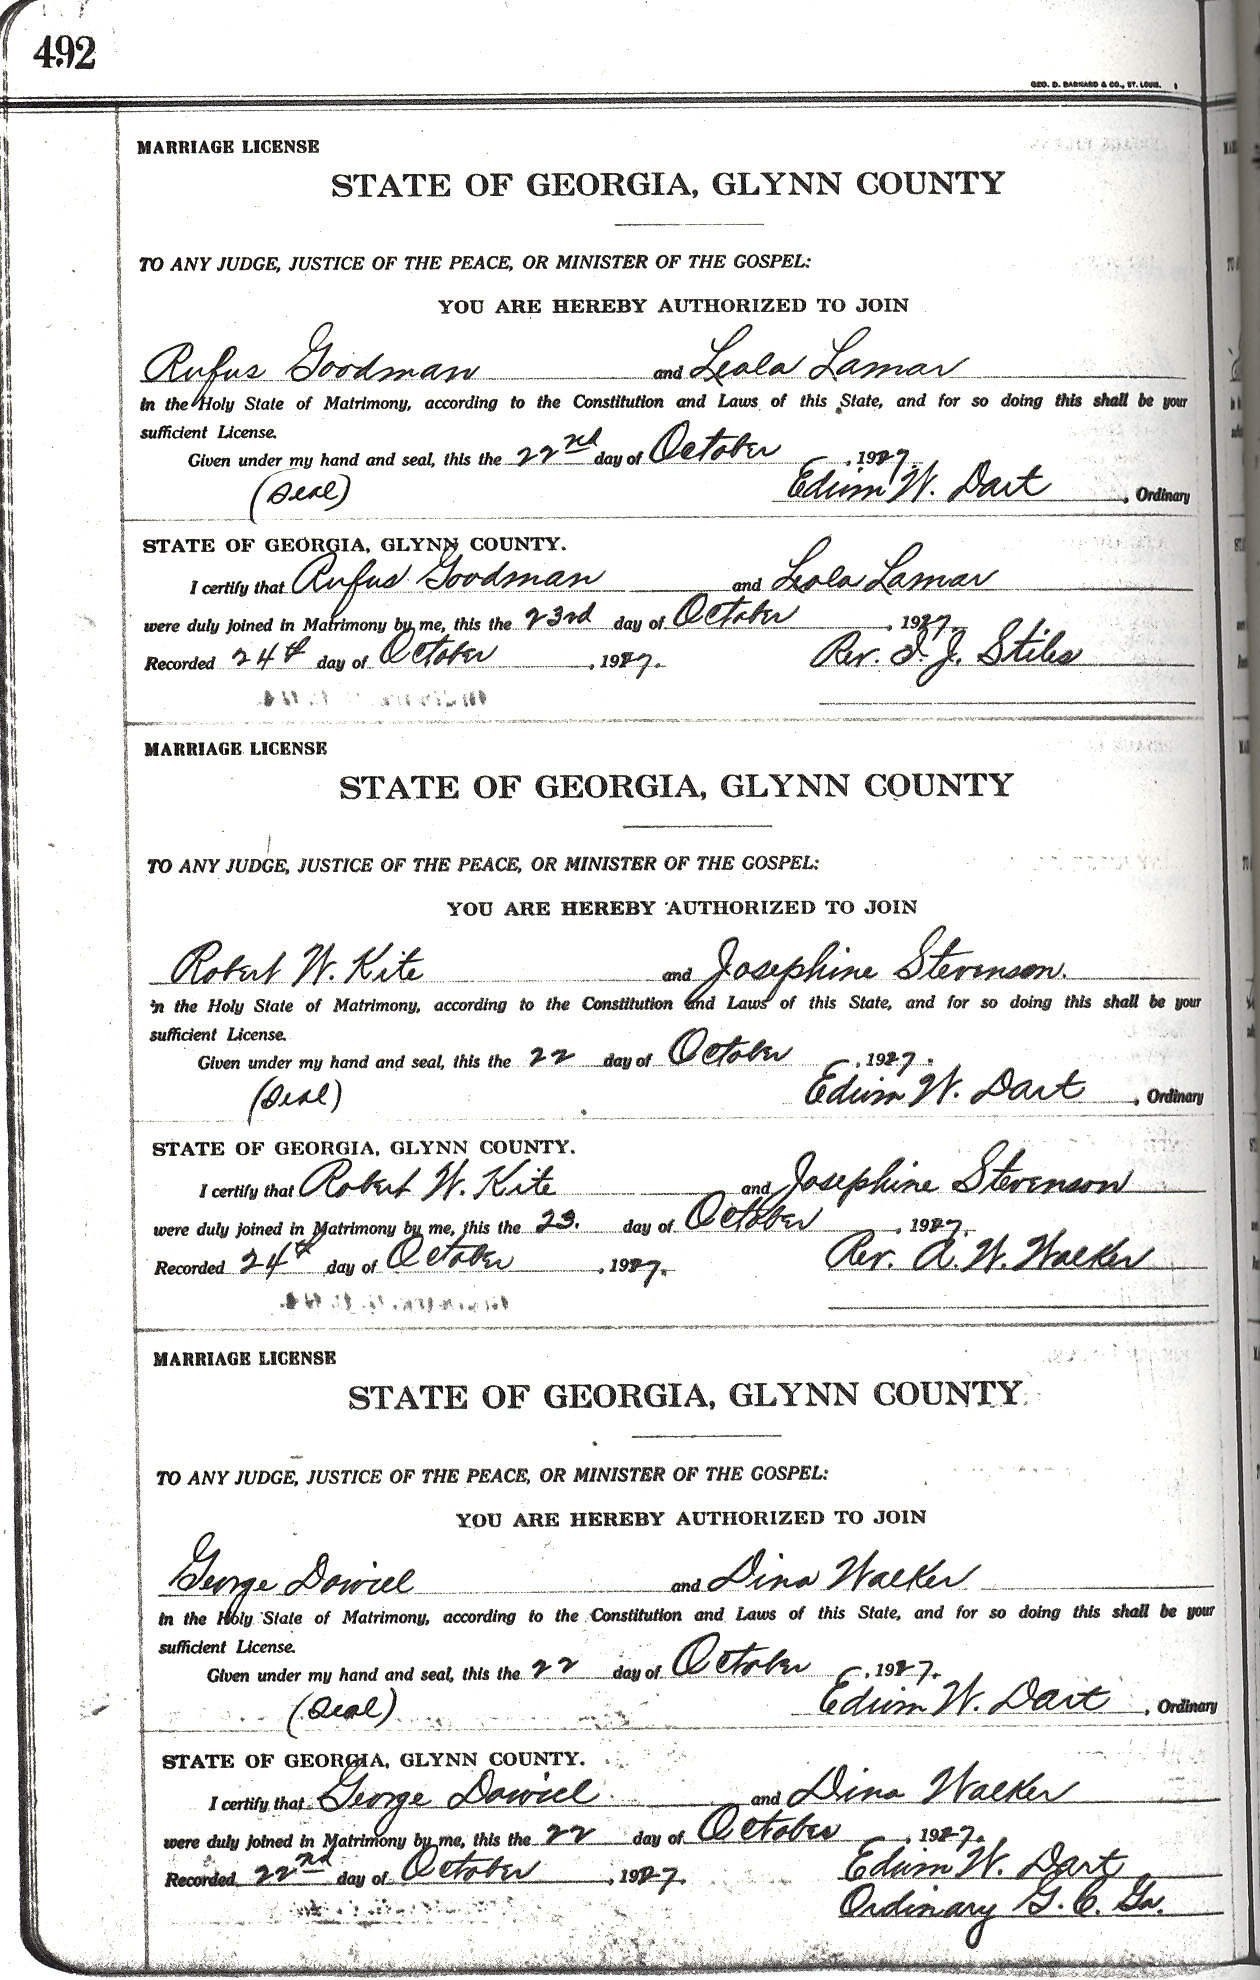 492
GEO. D. BARNARD & CO., ST. LOUIS.
MARRIAGE LICENSE
STATE OF GEORGIA, GLYNN COUNTY
TO ANY JUDGE, JUSTICE OF THE PEACE, OR MINISTER OF THE GOSPEL:
YOU ARE HEREBY AUTHORIZED TO JOIN
Rufus Goodman and Leola Lamar
in the Holy State of Matrimony, according to the Constitution and Laws of this State, and for so doing this shall be your
sufficient License.
Given under my hand and seal, this the 22nd day of October, 1927.
(Seal) Edwin W. Dart, Ordinary
STATE OF GEORGIA, GLYNN COUNTY.
I certify that Rufus Goodman and Leola Lamar
were duly joined in Matrimony by me, this the 23rd day of October, 1927.
Recorded 24th day of October, 1927. Rev. I. J. Stiles
MARRIAGE LICENSE
STATE OF GEORGIA, GLYNN COUNTY
TO ANY JUDGE, JUSTICE OF THE PEACE, OR MINISTER OF THE GOSPEL:
YOU ARE HEREBY AUTHORIZED TO JOIN
Robert W. Kite and Josephine Stevenson.
in the Holy State of Matrimony, according to the Constitution and Laws of this State, and for so doing this shall be your
sufficient License.
Given under my hand and seal, this the 22 day of October, 1927.
(Seal) Edwin W. Dart, Ordinary
STATE OF GEORGIA, GLYNN COUNTY.
I certify that Robert W. Kite and Josephine Stevenson
were duly joined in Matrimony by me, this the 23. day of October, 1927.
Recorded 24th day of October, 1927. Rev. A. W. Walker
MARRIAGE LICENSE
STATE OF GEORGIA, GLYNN COUNTY
TO ANY JUDGE, JUSTICE OF THE PEACE, OR MINISTER OF THE GOSPEL:
YOU ARE HEREBY AUTHORIZED TO JOIN
George Dowiel and Dina Walker
in the Holy State of Matrimony, according to the Constitution and Laws of this State, and for so doing this shall be your
sufficient License.
Given under my hand and seal, this the 22 day of October, 1927.
(Seal) Edwin W. Dart, Ordinary
STATE OF GEORGIA, GLYNN COUNTY.
I certify that George Dowiel and Dina Walker
were duly joined in Matrimony by me, this the 22 day of October, 1927.
Recorded 22nd day of October, 1927. Edwin W. Dart
Ordinary G. C. Ga.